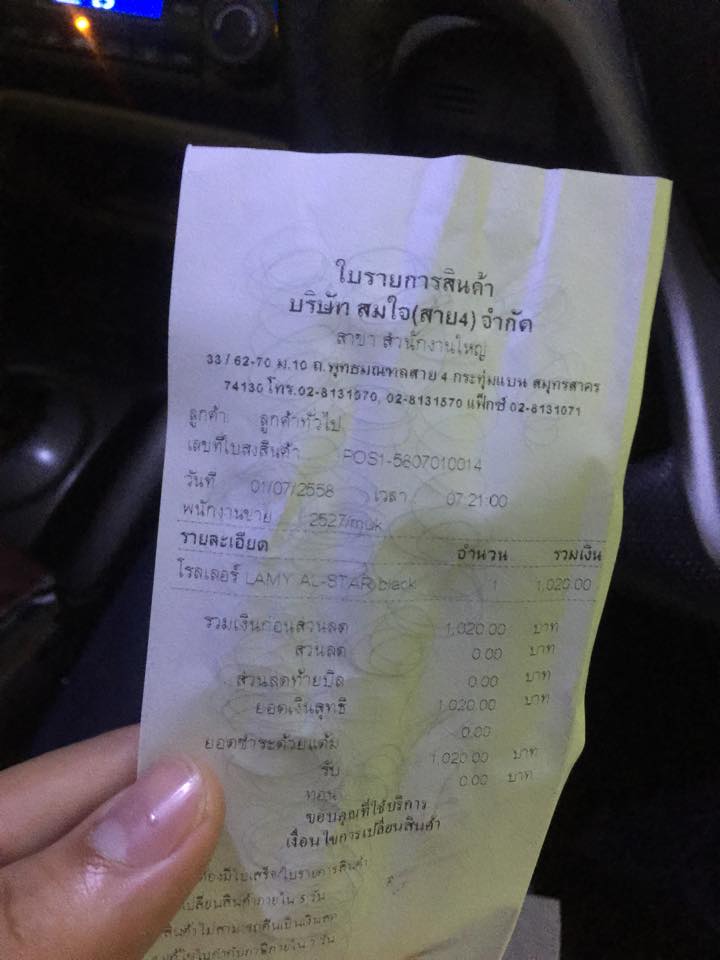 ใบรายการสินค้า
บริษัท สมใจ(สาย4) จำกัด
สาขา สำนักงานใหญ่
33/62-70 ม.10 ถ.พุทธมณฑลสาย 4 กระทุ่มแบน สมุทรสาคร
74130 โทร.02-8131070, 02-8131570 แฟ็กซ์ 02-8131071
ลูกค้า ลูกค้าทั่วไป
เลขที่ใบส่งสินค้า POS1-5807010014
วันที่ 01/07/2558 เวลา 07:21:00
พนักงานขาย 2527/muk
รายละเอียด จำนวน รวมเงิน
โรลเลอร์ LAMY AL-STAR black 1 1,020.00
รวมเงินก่อนส่วนลด 1,020.00 บาท
ส่วนลด 0.00 บาท
ส่วนลดท้ายบิล 0.00 บาท
ยอดเงินสุทธิ 1,020.00 บาท
ยอดชำระด้วยแต้ม 0.00
รับ 1,020.00 บาท
ทอน 0.00 บาท
ขอบคุณที่ใช้บริการ
เงื่อนไขการเปลี่ยนสินค้า
ต้องมีใบเสร็จ/ใบรายการสินค้า
เปลี่ยนสินค้าภายใน 5 วัน
สินค้าไม่สามารถคืนเป็นเงินสด
ใบกำกับภาษีภายใน 7 วัน